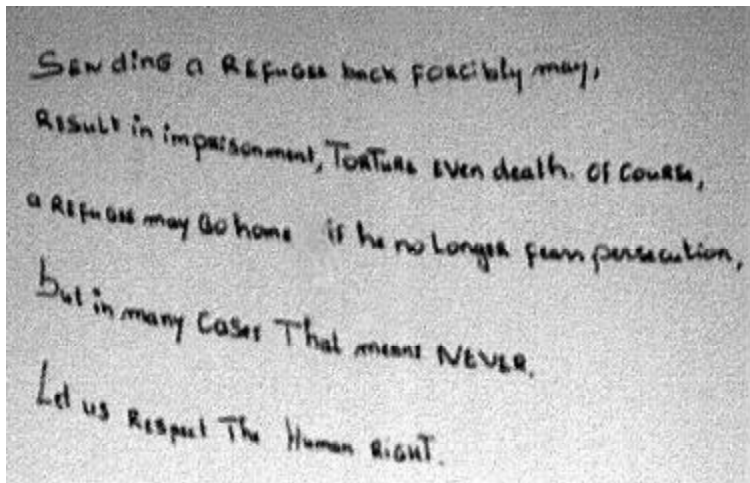 Sending a Refugee back forcibly may,
Result in imprisonment, Torture even death. Of course,
a Refugee may Go home if he no Longer fears persecution,
but in many Cases That means NEVER.
Let us Respect The Human RIGHT.